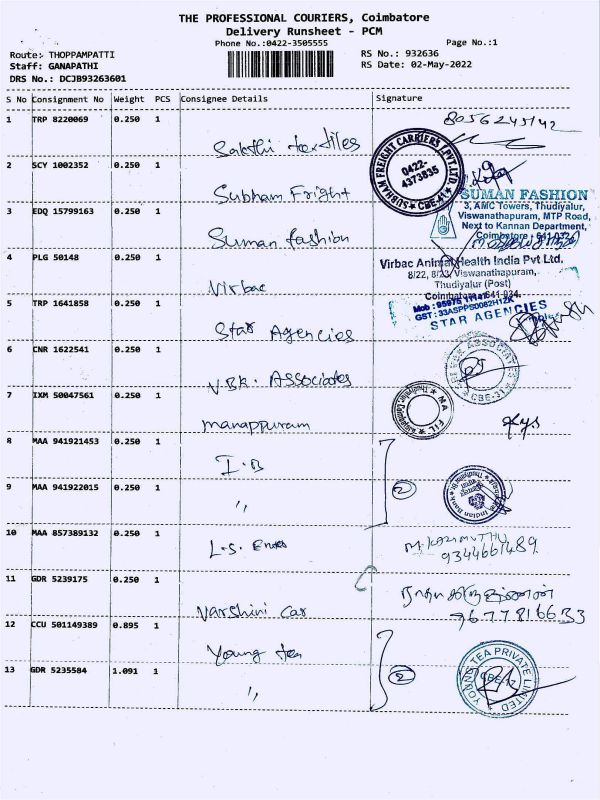 THE PROFESSIONAL COURIERS, Coimbatore
Delivery Runsheet - PCM
Phone No.:0422-3505555
Page No.:1
Route: THOPPAMPATTI
RS No.: 932636
Staff: GANAPATHI
RS Date: 02-May-2022
DRS No.: DCJB93263601
S No Consignment No Weight PCS Consignee Details Signature
1 TRP 8220069 0.250 1 Sakthi textiles 8056245142
2 SCY 1002352 0.250 1 Subham Fright
SUBHAM FREIGHT CARRIERS (P) LTD. CBE-41
0422-
4373835
3 EDQ 15799163 0.250 1 Suman fashion
SUMAN FASHION
3, AMC Towers, Thudiyalur,
Viswanathapuram, MTP Road,
Next to Kannan Department,
Coimbatore - 641 034
4 PLG 50148 0.250 1 Virbac
Virbac Animal Health India Pvt Ltd,
8/22, 8/23, Viswanathapuram,
Thudiyalur (Post)
Coimbatore-641 034.
5 TRP 1641858 0.250 1 Star Agencies
STAR AGENCIES
6 CNR 1622541 0.250 1 V.B.K. Associates
ASSOCIATES
CBE-31
7 IXM 50047561 0.250 1 manappuram
8 MAA 941921453 0.250 1 I.B
9 MAA 941922015 0.250 1 "
2
Indian Bank
10 MAA 857389132 0.250 1 L.S.
9344661489
11 GDR 5239175 0.250 1 Varshini Car
9677816633
12 CCU 501149389 0.895 1 Young tea
13 GDR 5235584 1.091 1 "
2
YOUNG TEA PRIVATE LIMITED